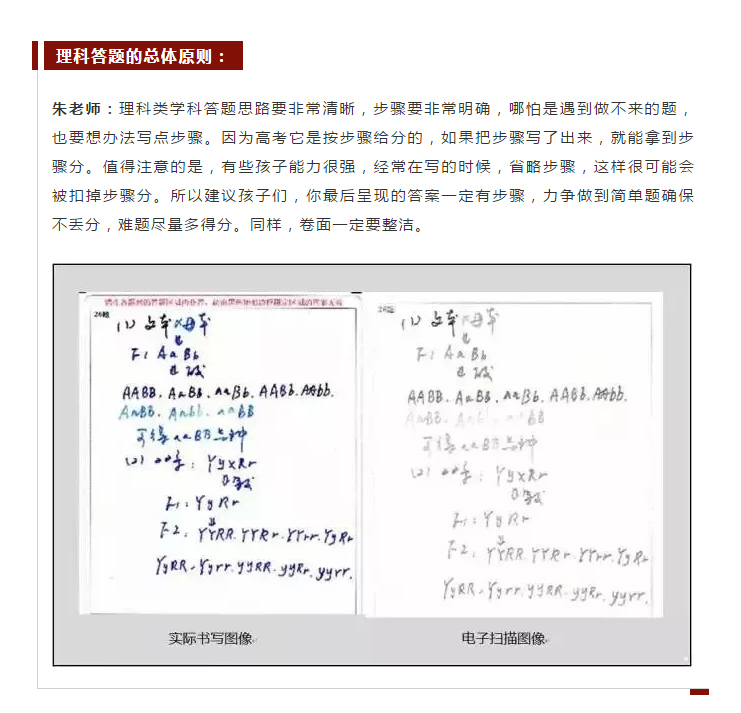 理科答题的总体原则：
朱老师：理科类学科答题思路要非常清晰，步骤要非常明确，哪怕是遇到做不来的题，
也要想办法写点步骤。因为高考它是按步骤给分的，如果把步骤写了出来，就能拿到步
骤分。值得注意的是，有些孩子能力很强，经常在写的时候，省略步骤，这样很可能会
被扣掉步骤分。所以建议孩子们，你最后呈现的答案一定有步骤，力争做到简单题确保
不丢分，难题尽量多得分。同样，卷面一定要整洁。
26题
(1) 父本×母本
F1 AaBb
AABB. AaBB. aaBb. AABb. AAbb.
AaBB. Aabb. aaBB
可得aaBB
(2) : YyxRr
F1: YyRr
F2: YYRR. YYRr. YYrr. YyRr
YyRR. Yyrr. yyRR. yyRr. yyrr.
26题
(1) 父本×母本
F1 AaBb
AABB. AaBB. aaBb. AABb. AAbb.
可得aaBB
(2) : YyxRr
F1: YyRr
F2: YYRR. YYRr. YYrr. YyRr
YyRR. Yyrr. yyRR. yyRr. yyrr.
实际书写图像
电子扫描图像